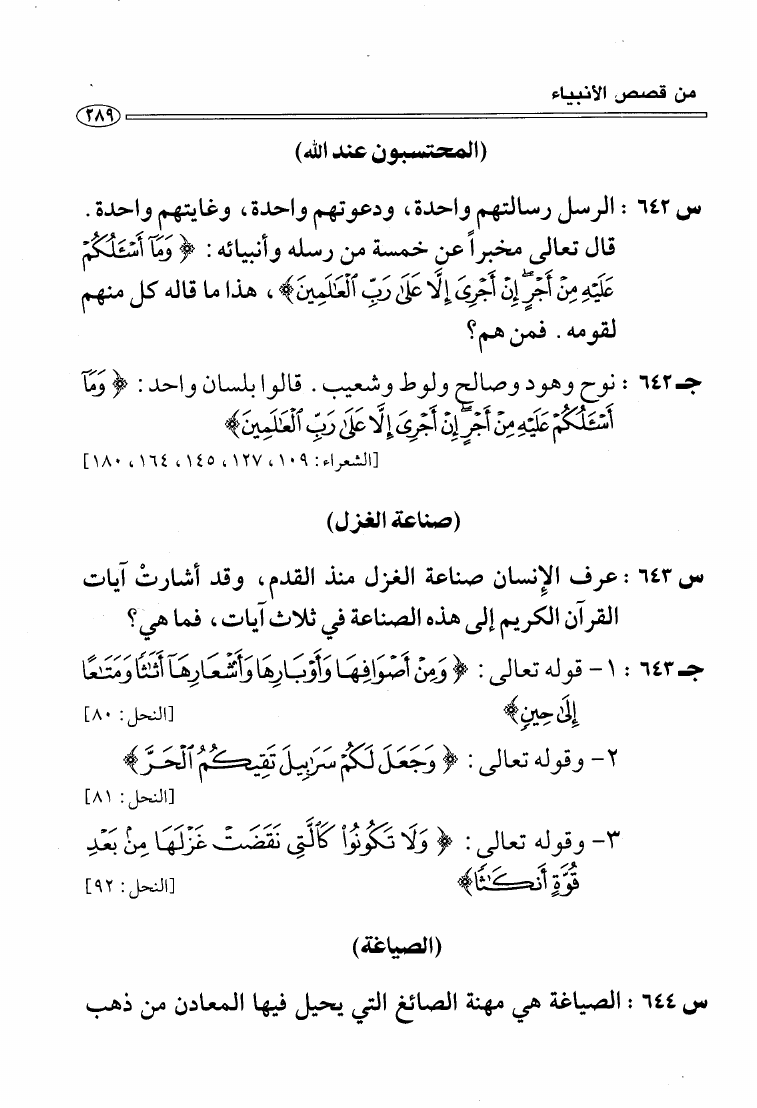 من قصص الأنبياء
٢٨٩
(المحتسبون عند الله)
س ٦٤٢ : الرسل رسالتهم واحدة، ودعوتهم واحدة، وغايتهم واحدة.
قال تعالى مخبراً عن خمسة من رسله وأنبيائه: ﴿ وَمَآ أَسْـَٔلُكُمْ
عَلَيْهِ مِنْ أَجْرٍ إِنْ أَجْرِىَ إِلَّا عَلَىٰ رَبِّ ٱلْعَـٰلَمِينَ﴾، هذا ما قاله كل منهم
لقومه. فمن هم؟
جـ ٦٤٢ : نوح وهود وصالح ولوط وشعيب. قالوا بلسان واحد: ﴿ وَمَآ
أَسْـَٔلُكُمْ عَلَيْهِ مِنْ أَجْرٍ إِنْ أَجْرِىَ إِلَّا عَلَىٰ رَبِّ ٱلْعَـٰلَمِينَ﴾
[الشعراء: ١٠٩، ١٢٧، ١٤٥، ١٦٤، ١٨٠]
(صناعة الغزل)
س ٦٤٣ : عرف الإنسان صناعة الغزل منذ القدم، وقد أشارتْ آيات
القرآن الكريم إلى هذه الصناعة في ثلاث آيات، فما هي؟
جـ ٦٤٣ : ١- قوله تعالى: ﴿ وَمِنْ أَصْوَافِهَا وَأَوْبَارِهَا وَأَشْعَارِهَآ أَثَـٰثًا وَمَتَـٰعًا
إِلَىٰ حِينٍ﴾ [النحل: ٨٠]
٢- وقوله تعالى: ﴿ وَجَعَلَ لَكُمْ سَرَٰبِيلَ تَقِيكُمُ ٱلْحَرَّ ﴾
[النحل: ٨١]
٣- وقوله تعالى: ﴿ وَلَا تَكُونُوا۟ كَٱلَّتِى نَقَضَتْ غَزْلَهَا مِنۢ بَعْدِ
قُوَّةٍ أَنكَـٰثًا﴾ [النحل: ٩٢]
(الصياغة)
س ٦٤٤ : الصياغة هي مهنة الصائغ التي يحيل فيها المعادن من ذهب